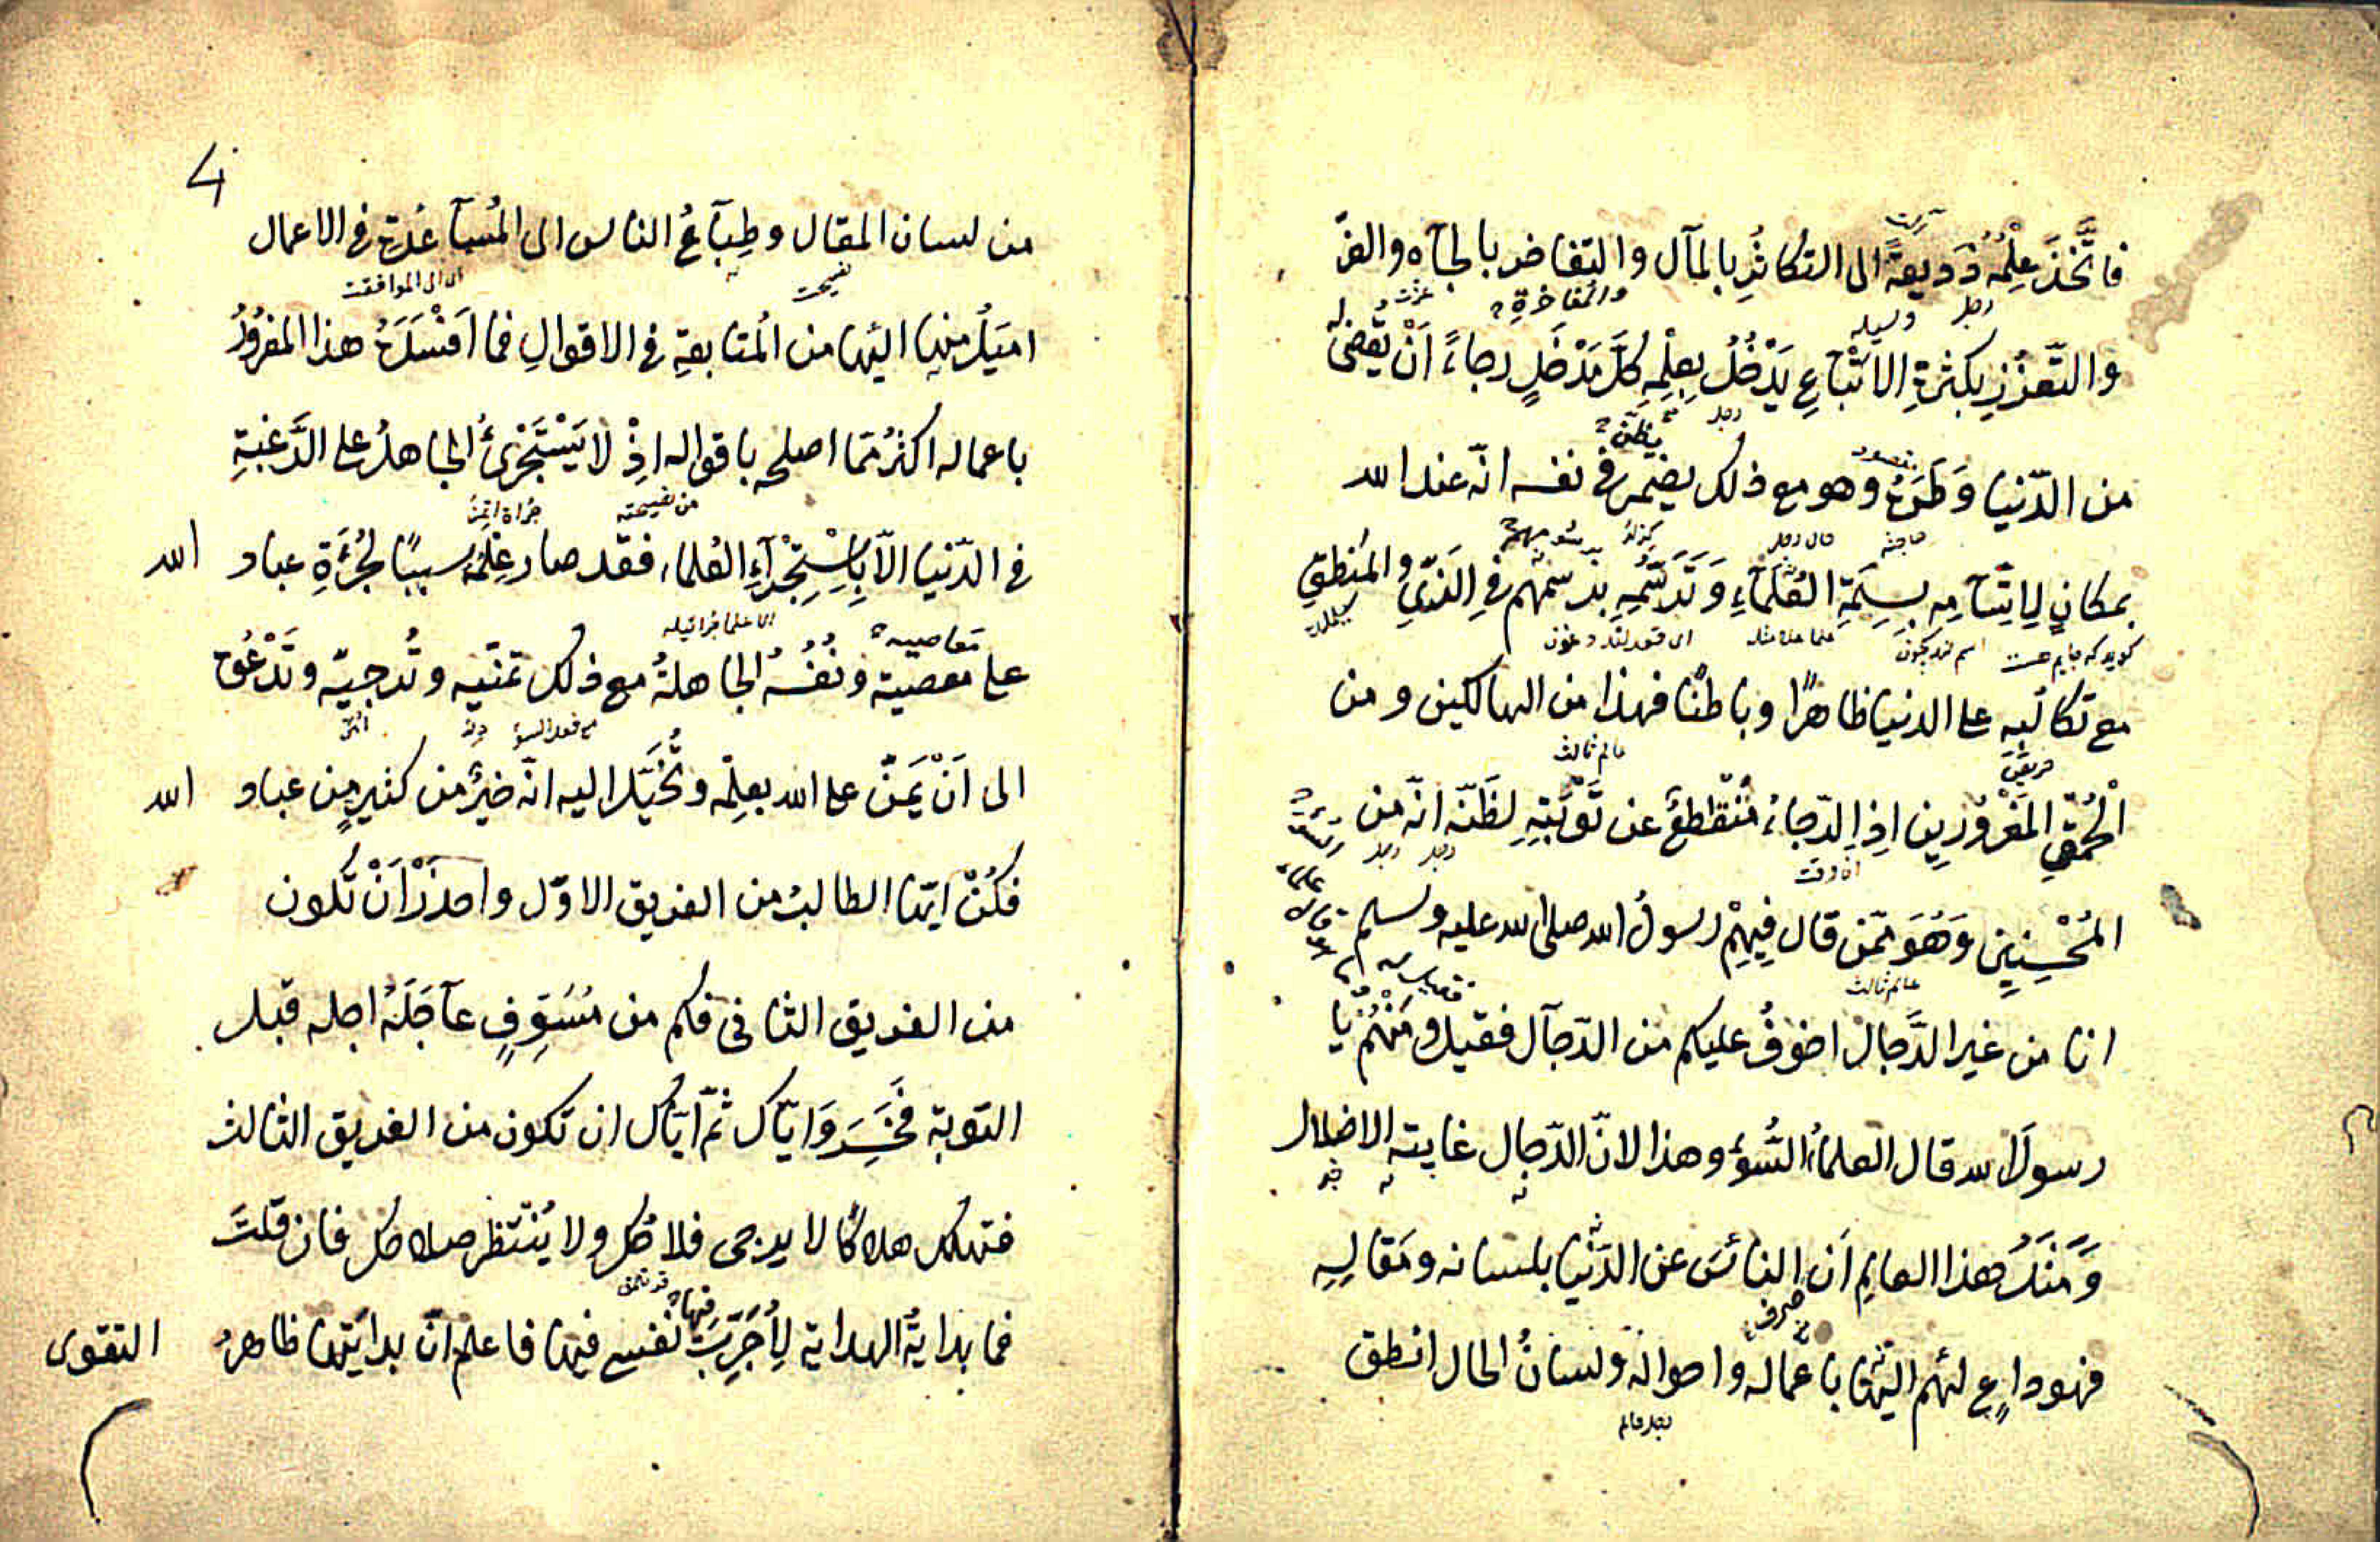 فاتَّخَذَ عِلْمُهُ ذَدِيعَةً الى التكاثُرِ بالمآل والتفاخر بالجآه والفرّ
والتّعزُّزِ بكثرةِ الاتْباعِ يَدْخُلُ بِعِلْمِهِ كلَّ مَدْخَلٍ رجاءً اَنْ يقضى
من الدّنيا وَطَرَهُ وهو مع ذلك يضمر فى نفسه انّه عند الله
بمكانٍ لِاتِّسامِهِ بسِمَةِ العُلَمآءِ وَتَرَسُّمِهِ برسمهم فى الزَىِّ والمنطقِ
مع تكالبه على الدنيا ظاهرًا وباطنًا فهذا من الهالكين ومن
الْحُمقى المَغْرُورِين اِذِ الرّجاءُ مُنْقَطِعٌ عن تَوْبَتِهِ لظَنّه انّه من
المُحْسِنِين وَهُوَ ممّن قال فِيهِمْ رسولُ الله صلى الله عليه وسلم
انا من غير الدَّجال اخوفُ عليكم من الدّجال فقيل ومَنْهُمْ يا
رسول الله قال العلماءُ السُّوْءِ وهذا لانّ الدّجال غايته الاضلال
وَمِثلُ هذا العالِمِ اَن الناسَ عن الدّنيا بلسانه ومَقالِهِ
صرف
فهو داعٍ لهم اليها باعماله واحواله ولسانُ الحال انطق
4
من لسان المقال وطِبَآعُ الناس الى المُسآعَدةِ فى الاعمال
اى الى الموافقت
اميَلُ منها اليها من المُتابعةِ فى الاقوالِ فما اَفْسَدَهُ هذا المغرُورُ
باعماله اكثرُ ممّا اصلحه باقواله اِذْ لا يَسْتَجْرِئُ الجاهلُ على الرَّغبةِ
من نصيحته
فى الدّنيا الّا بِاسْتِجْرَآءِ العُلماء فقد صار عِلْمُهُ سببًا لجُرْءَةِ عباد الله
معاصيه
على معصيته ونَفْسُهُ الجاهلةُ مع ذلك تمنّيه وتُرجيّه وتَدْعُوهُ
الى اَنْ يَمَنّ على الله بعلِمه وتُخَيّل اليه انّه خيرٌ من كثيرٍ من عباد الله
فكُنْ ايّها الطالبُ من الفريق الاوّل واحذرْ اَنْ تكون
من الفريق الثانى فكم من مُسَوِّفٍ عآجَلَهُ اجله قبل
التوبة فخَسِرَ وَايّاك ثمّ ايّاك ان تكون من الفريق الثالث
فتهلك هلاكًا لا يرجى فلاحُك ولا يُنْتَظر صلاحك فان قلتَ
فيها
فما بدايةُ الهداية لِاُجَرِّبَ نفسى فيها فاعلم انّ بدايَتها ظاهرُ التقوى